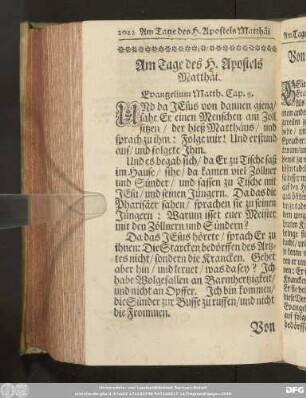 2022 Am Tage des H. Apostels Matthäi
Am Tage des H. Apostels
Matthäi.
Evangelium Matth. Cap. 9.
UNd da JEsus von dannen gieng/
sahe Er einen Menschen am Zoll
sitzen/ der hieß Matthäus/ und
sprach zu ihm: Folge mir! Und er stund
auf/ und folgete Ihm.
Und es begab sich/ da Er zu Tische saß
im Hause/ sihe/ da kamen viel Zöllner
und Sünder/ und sassen zu Tische mit
JEsu/ und seinen Jüngern. Da das die
Pharisäer sahen/ sprachen sie zu seinen
Jüngern: Warum isset euer Meister
mit den Zöllnern und Sündern?
Da das JEsus hörete/ sprach Er zu
ihnen: Die Starcken bedörffen des Artz-
tes nicht/ sondern die Krancken. Gehet
aber hin/ und lernet/ was da sey? Ich
habe Wolgefallen an Barmhertzigkeit/
und nicht an Opffer. Ich bin kommen/
die Sünder zur Busse zu ruffen/ und nicht
die Frommen.
Von